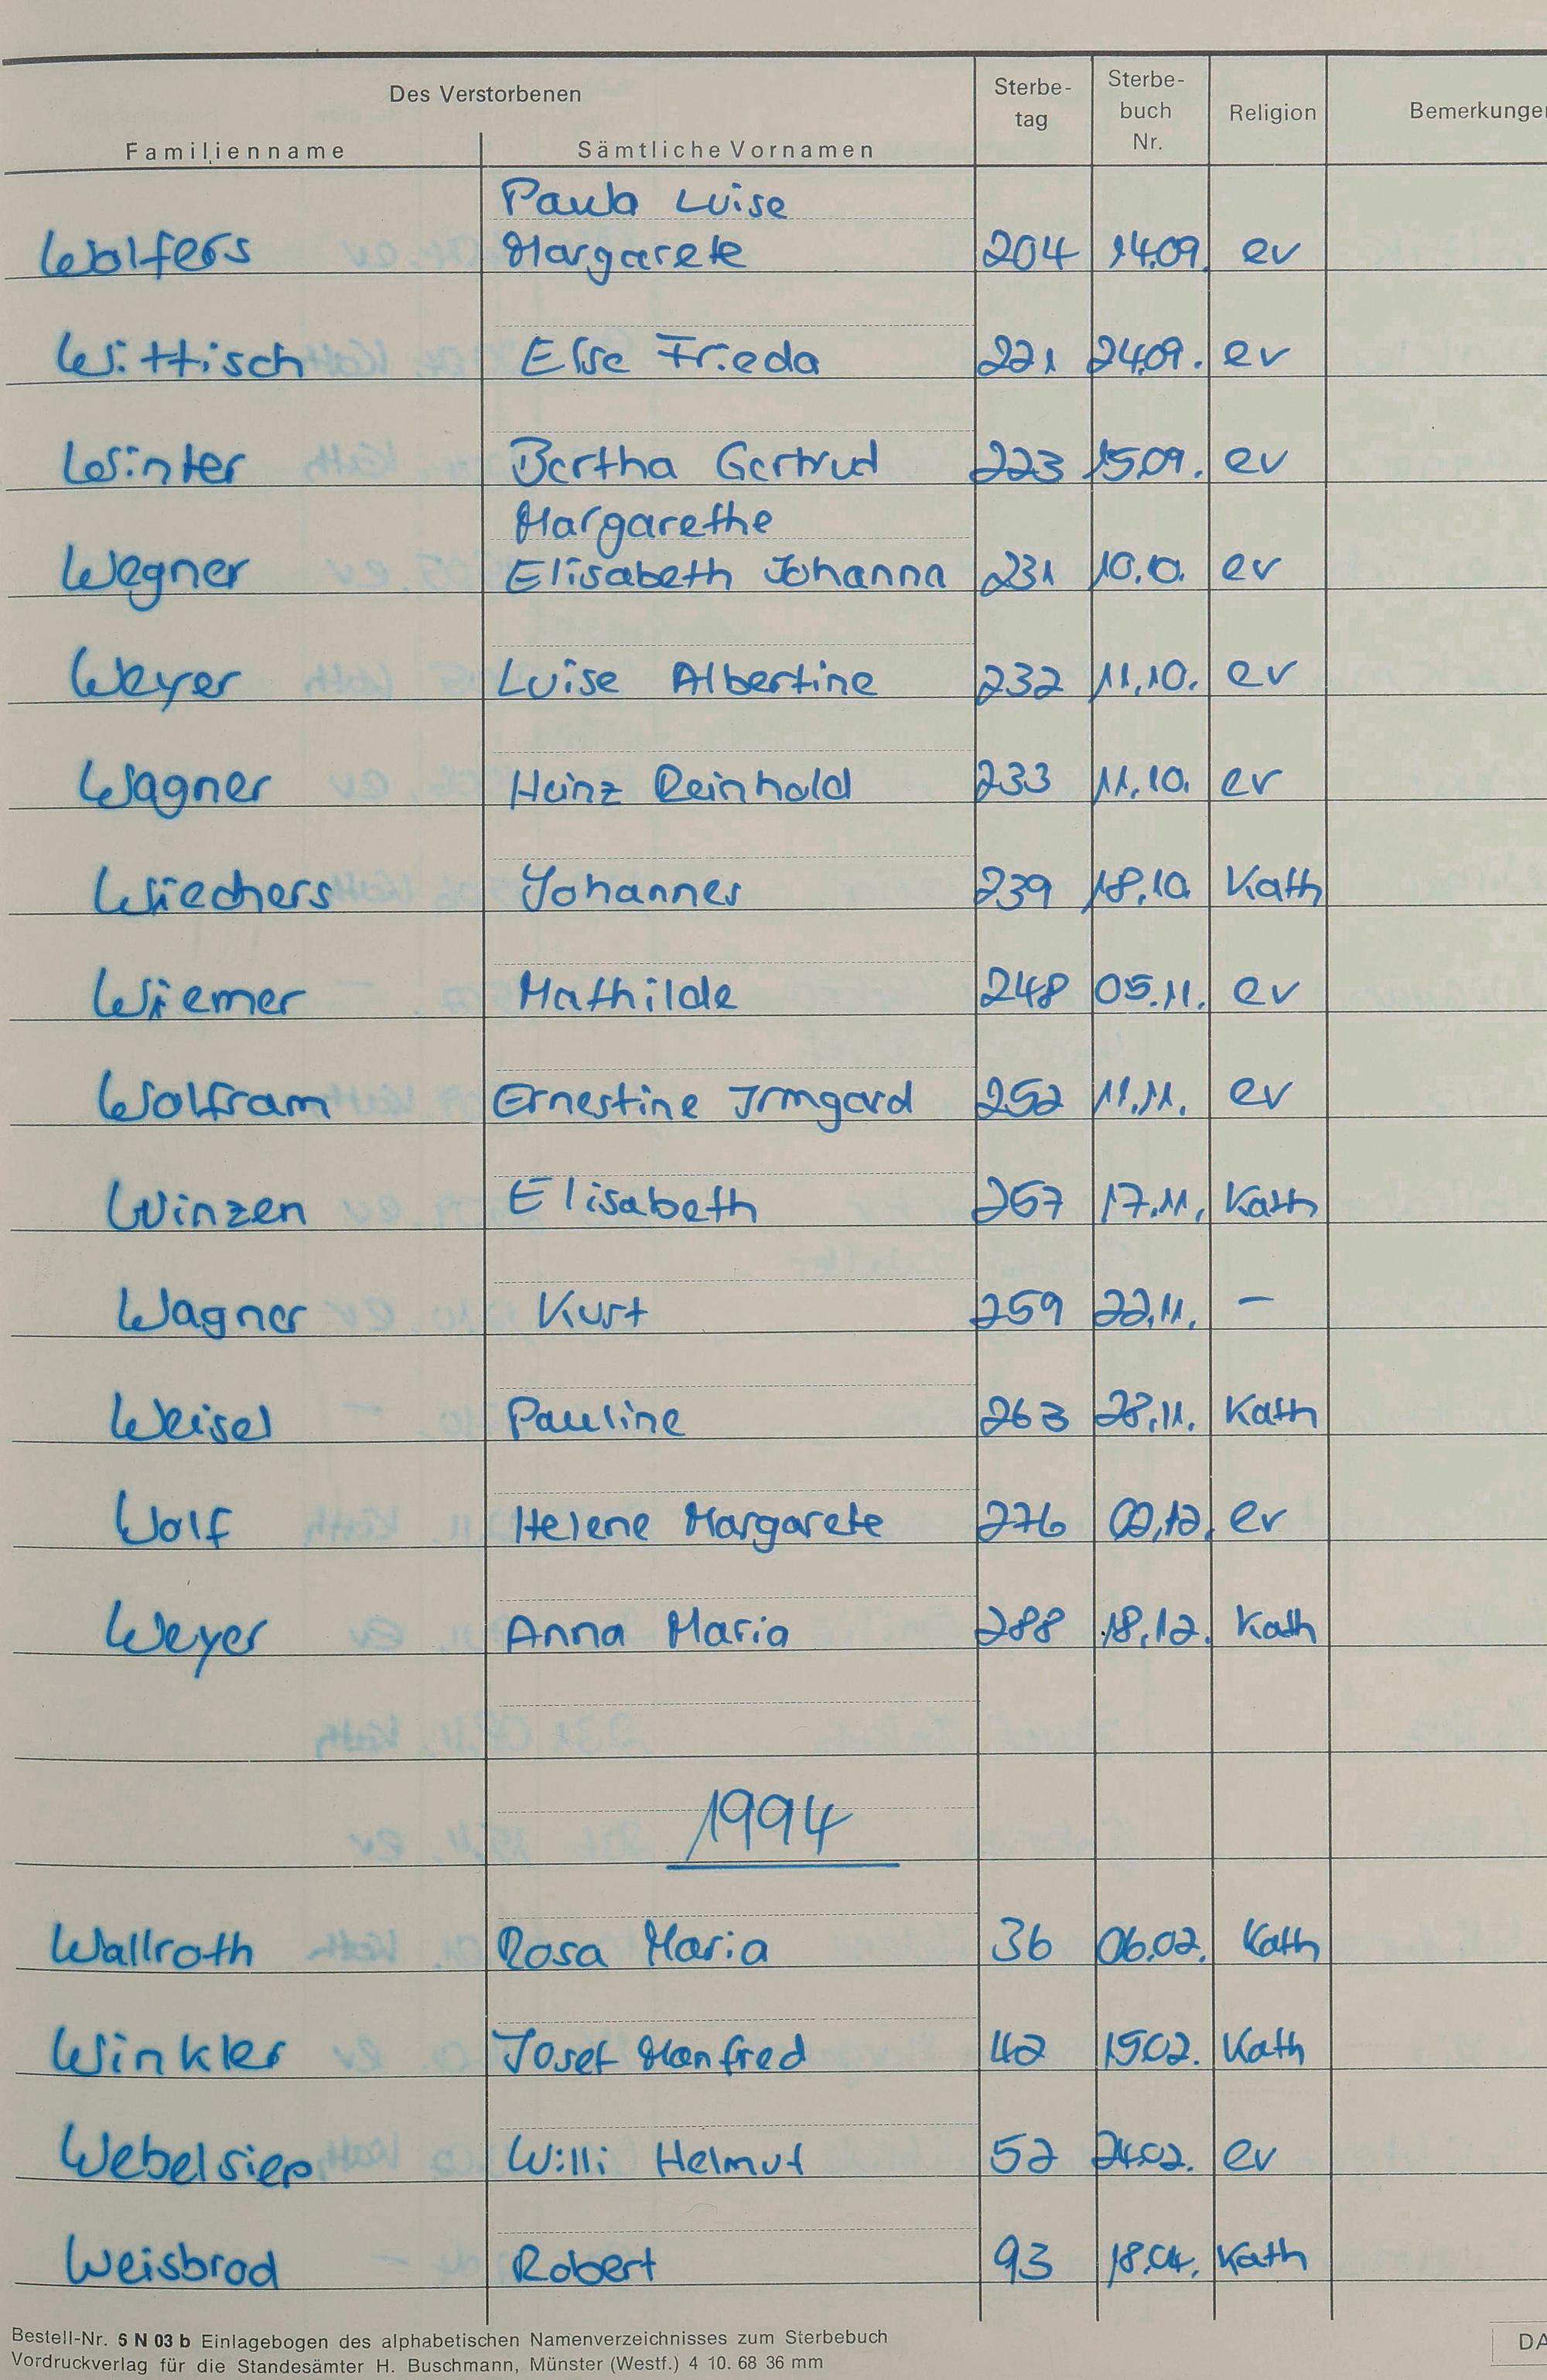 Des Verstorbenen
Familienname Sämtliche Vornamen Sterbe-tag Sterbe-buch Nr. Religion Bemerkunge
Paula Luise
Wolfers Margarete 204 14.09. ev
Wittisch Else Frieda 221 24.09. ev
Winter Bertha Gertrud 223 15.09. ev
Margarethe
Wegner Elisabeth Johanna 231 10.10. ev
Weyer Luise Albertine 232 11.10. ev
Wagner Heinz Reinhold 233 11.10. ev
Wiechers Johannes 239 18.10. Kath
Wiemer Mathilde 248 05.11. ev
Wolfram Ernestine Irmgard 252 11.11. ev
Winzen Elisabeth 257 17.11. Kath
Wagner Kurt 259 22.11. –
Weisel Pauline 263 28.11. Kath
Wolf Helene Margarete 276 02.12. ev
Weyer Anna Maria 288 18.12. Kath
1994
Wallroth Rosa Maria 36 06.02. Kath
Winkler Josef Manfred 42 15.02. Kath
Webelsiep Willi Helmut 52 24.02. ev
Weisbrod Robert 93 18.04. Kath
Bestell-Nr. 5 N 03 b Einlagebogen des alphabetischen Namenverzeichnisses zum Sterbebuch
Vordruckverlag für die Standesämter H. Buschmann, Münster (Westf.) 4 10. 68 36 mm
DA